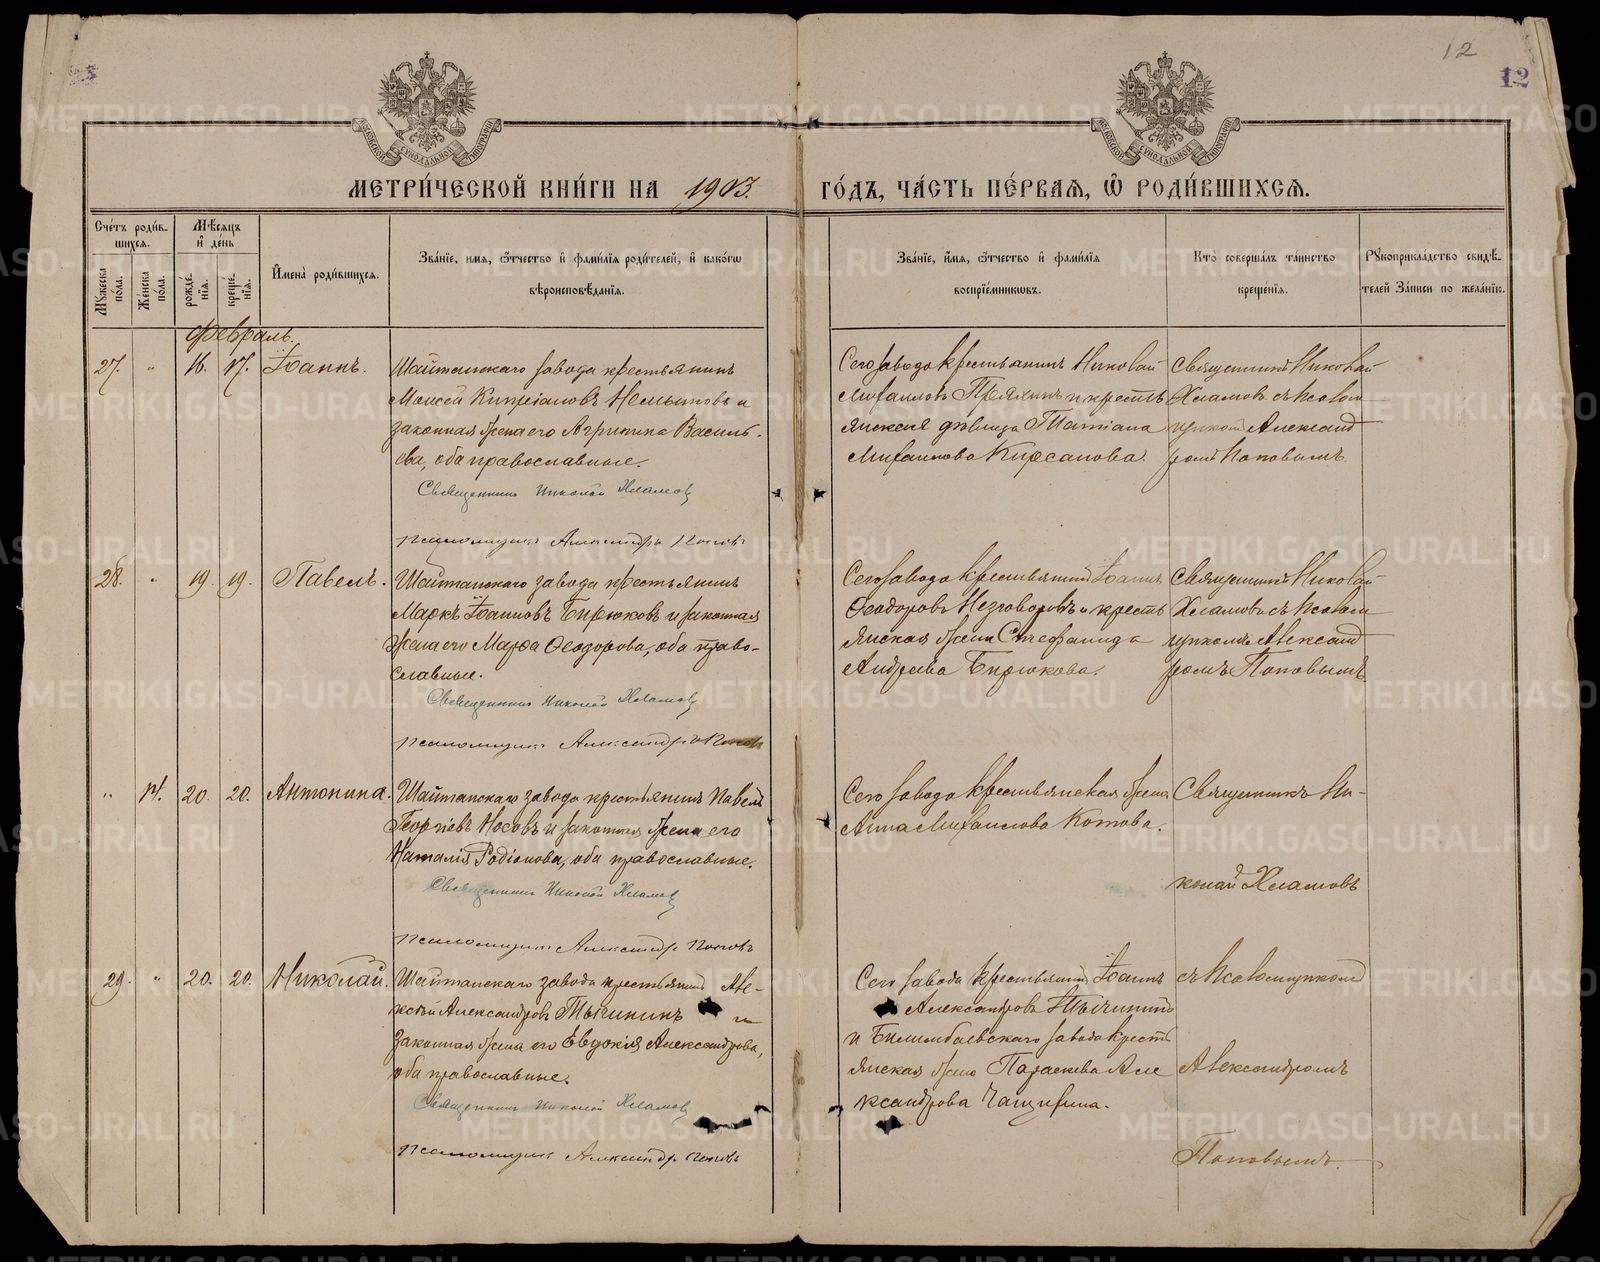 12
12
МЕТРИ́ЧЕСКОЙ КНИ́ГИ НА 1903. ГО́ДЪ, ЧА́СТЬ ПЕ́РВАѦ, Ѽ РОДИ́ВШИХСѦ.
Сче́тъ роди́в-
шихсѧ.
Мꙋ́жеска по́ла.
Же́нска по́ла.
Мѣ́сѧцъ
и҆ де́нь
рожде́-
нїѧ.
креще́-
нїѧ.
И҆мена̀ роди́вшихсѧ.
Зва́нїе, и҆мѧ, ѻ҆́тчество и҆ фами́лїѧ роди́телей, и҆ како́гѡ
вѣроисповѣ́данїѧ.
Зва́нїе, и҆́мѧ, ѻ҆́тчество и҆ фами́лїѧ
воспрїе́мникѡвъ.
Кто̀ соверша́лъ та́инство
креще́нїѧ.
Рꙋкоприкла́дство свидѣ́-
телей за́писи по жела́нїю.
Февраль.
27. " 16. 17. Іоаннъ.
Шайтанскаго завода крестьянинъ
Моисей Кипріановъ Немытовъ и
законная жена его Агрипина Василь-
ева, оба православные.
Священникъ Николай Хламовъ
псаломщикъ Александръ Поповъ
Сего завода крестьянинъ Николай
Михаиловъ Пряхинъ и кресть
янская дѣвица Татіана
Михаилова Кирсанова.
Священникъ Николай
Хламовъ съ псалом
щикомъ Александ
ромъ Поповымъ.
28. " 19. 19. Павелъ.
Шайтанскаго завода крестьянинъ
Маркъ Іоанновъ Бирюковъ и законная
жена его Марѳа Ѳеодорова, оба право-
славные.
Священникъ Николай Хламовъ
псаломщикъ Александръ Поповъ
Сего завода крестьянинъ Іоаннъ
Ѳеодоровъ Незговоровъ и кресть
янская жена Стефанида
Андреева Бирюкова.
Священникъ Николай
Хламовъ съ псалом
щикомъ Александ
ромъ Поповымъ.
" 14. 20. 20. Антонина.
Шайтанскаго завода крестьянинъ Павелъ
Георгіевъ Носовъ и законная жена его
Наталія Родіонова, оба православные.
Священникъ Николай Хламовъ
псаломщикъ Александръ Поповъ
Сего завода крестьянская жена
Анна Михаилова Котова.
Священникъ Ни-
колай Хламовъ
29. " 20. 20. Николай.
Шайтанскаго завода крестьянинъ Але-
ксѣй Александровъ Тычининъ и
законная жена его Евдокія Александрова,
оба православные.
Священникъ Николай Хламовъ
псаломщикъ Александръ Поповъ
Сего завода крестьянинъ Іоаннъ
Александровъ Тычининъ
и Билимбаевскаго завода кресть
янская жена Параскева Але
ксандрова Чащихина.
съ псаломщикомъ
Александромъ
Поповымъ.